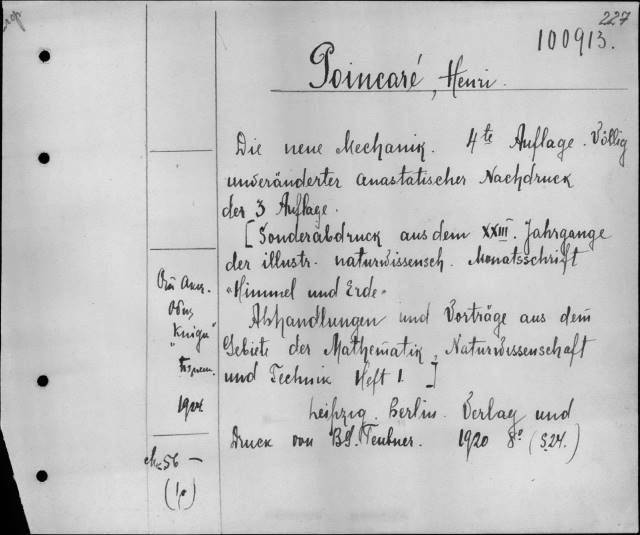 227
100913.
Poincaré, Henri.
Die neue Mechanik. 4te Auflage. Völlig
unveränderter anastatischer Nachdruck
der 3 Auflage.
[Sonderabdruck aus dem XXIII. Jahrgange
der illustr. naturwissensch. Monatsschrift
"Himmel und Erde"
Abhandlungen und Vorträge aus dem
Gebiete der Mathematik, Naturwissenschaft
und Technik Heft 1.]
Leipzig. Berlin. Verlag und
Druck von B.G. Teubner. 1920 8° (S.24.)
Общ
"Книга"
1924
56 —